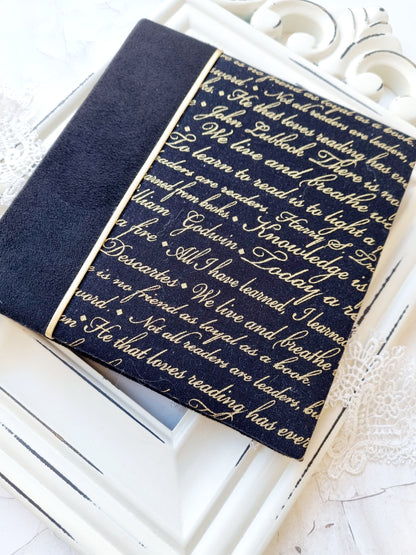 is no friend as loyal as a book
word • Not all readers are leaders,
• He that loves reading has ever
• John Lubbock • There is no
• We live and breathe w
To learn to read is to light a
leaders are readers • Harry S T
learned from books • Knowledge is
William Godwin • Today a r
a fire • All I have learned, I learned
Descartes • We live and breathe
is no friend as loyal as a book
word • Not all readers are leaders, bu
en • He that loves reading has ever